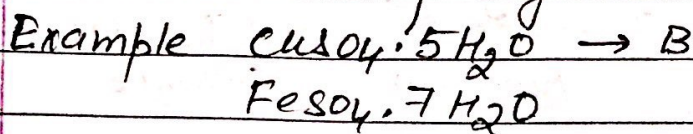 Example CuSO4.5H2O → B
FeSO4.7H2O